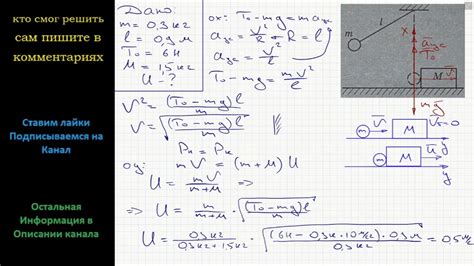 кто смог решить
сам пишите в
комментариях
Ставим лайки
Подписываемся на
Канал
Остальная
Информация в
Описании канала
Дано:
m = 0,3 кг
l = 0,9 м
T₀ = 6 Н
M = 1,5 кг
U - ?
ox: T₀ - mg = ma цс
a цс = V²/R ; R = l
a цс = V²/l
T₀ - mg = mV²/l
V² = (T₀ - mg)l/m
V = √((T₀ - mg)l/m)
Pн = Pк
oy: mV = (m + M)U
U = mV/(m+M) ⇒
⇒ U = m/(m+M) · √((T₀ - mg)l/m)
U = 0,3кг/(0,3кг+1,5кг) · √((6Н - 0,3кг·10м/с²)·0,9м/0,3кг) = 0,5 м/с
m
l
X
T₀
a цс
M
mg
V
M
V=0
y
M
U
y